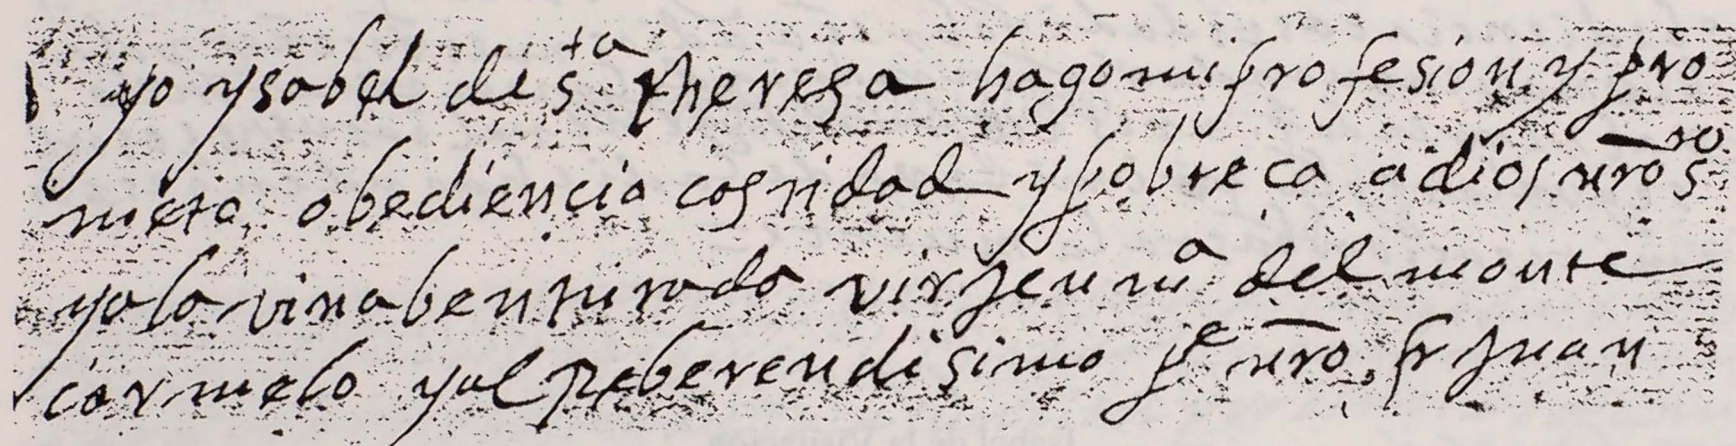 yo ysabel de sta theresa hago mi profesion y pro
meto obediencia castidad y pobreça a dios nro sr
y a la vinabenturada virjen ma del monte
carmelo y al Reberendisimo pe nro fr juan